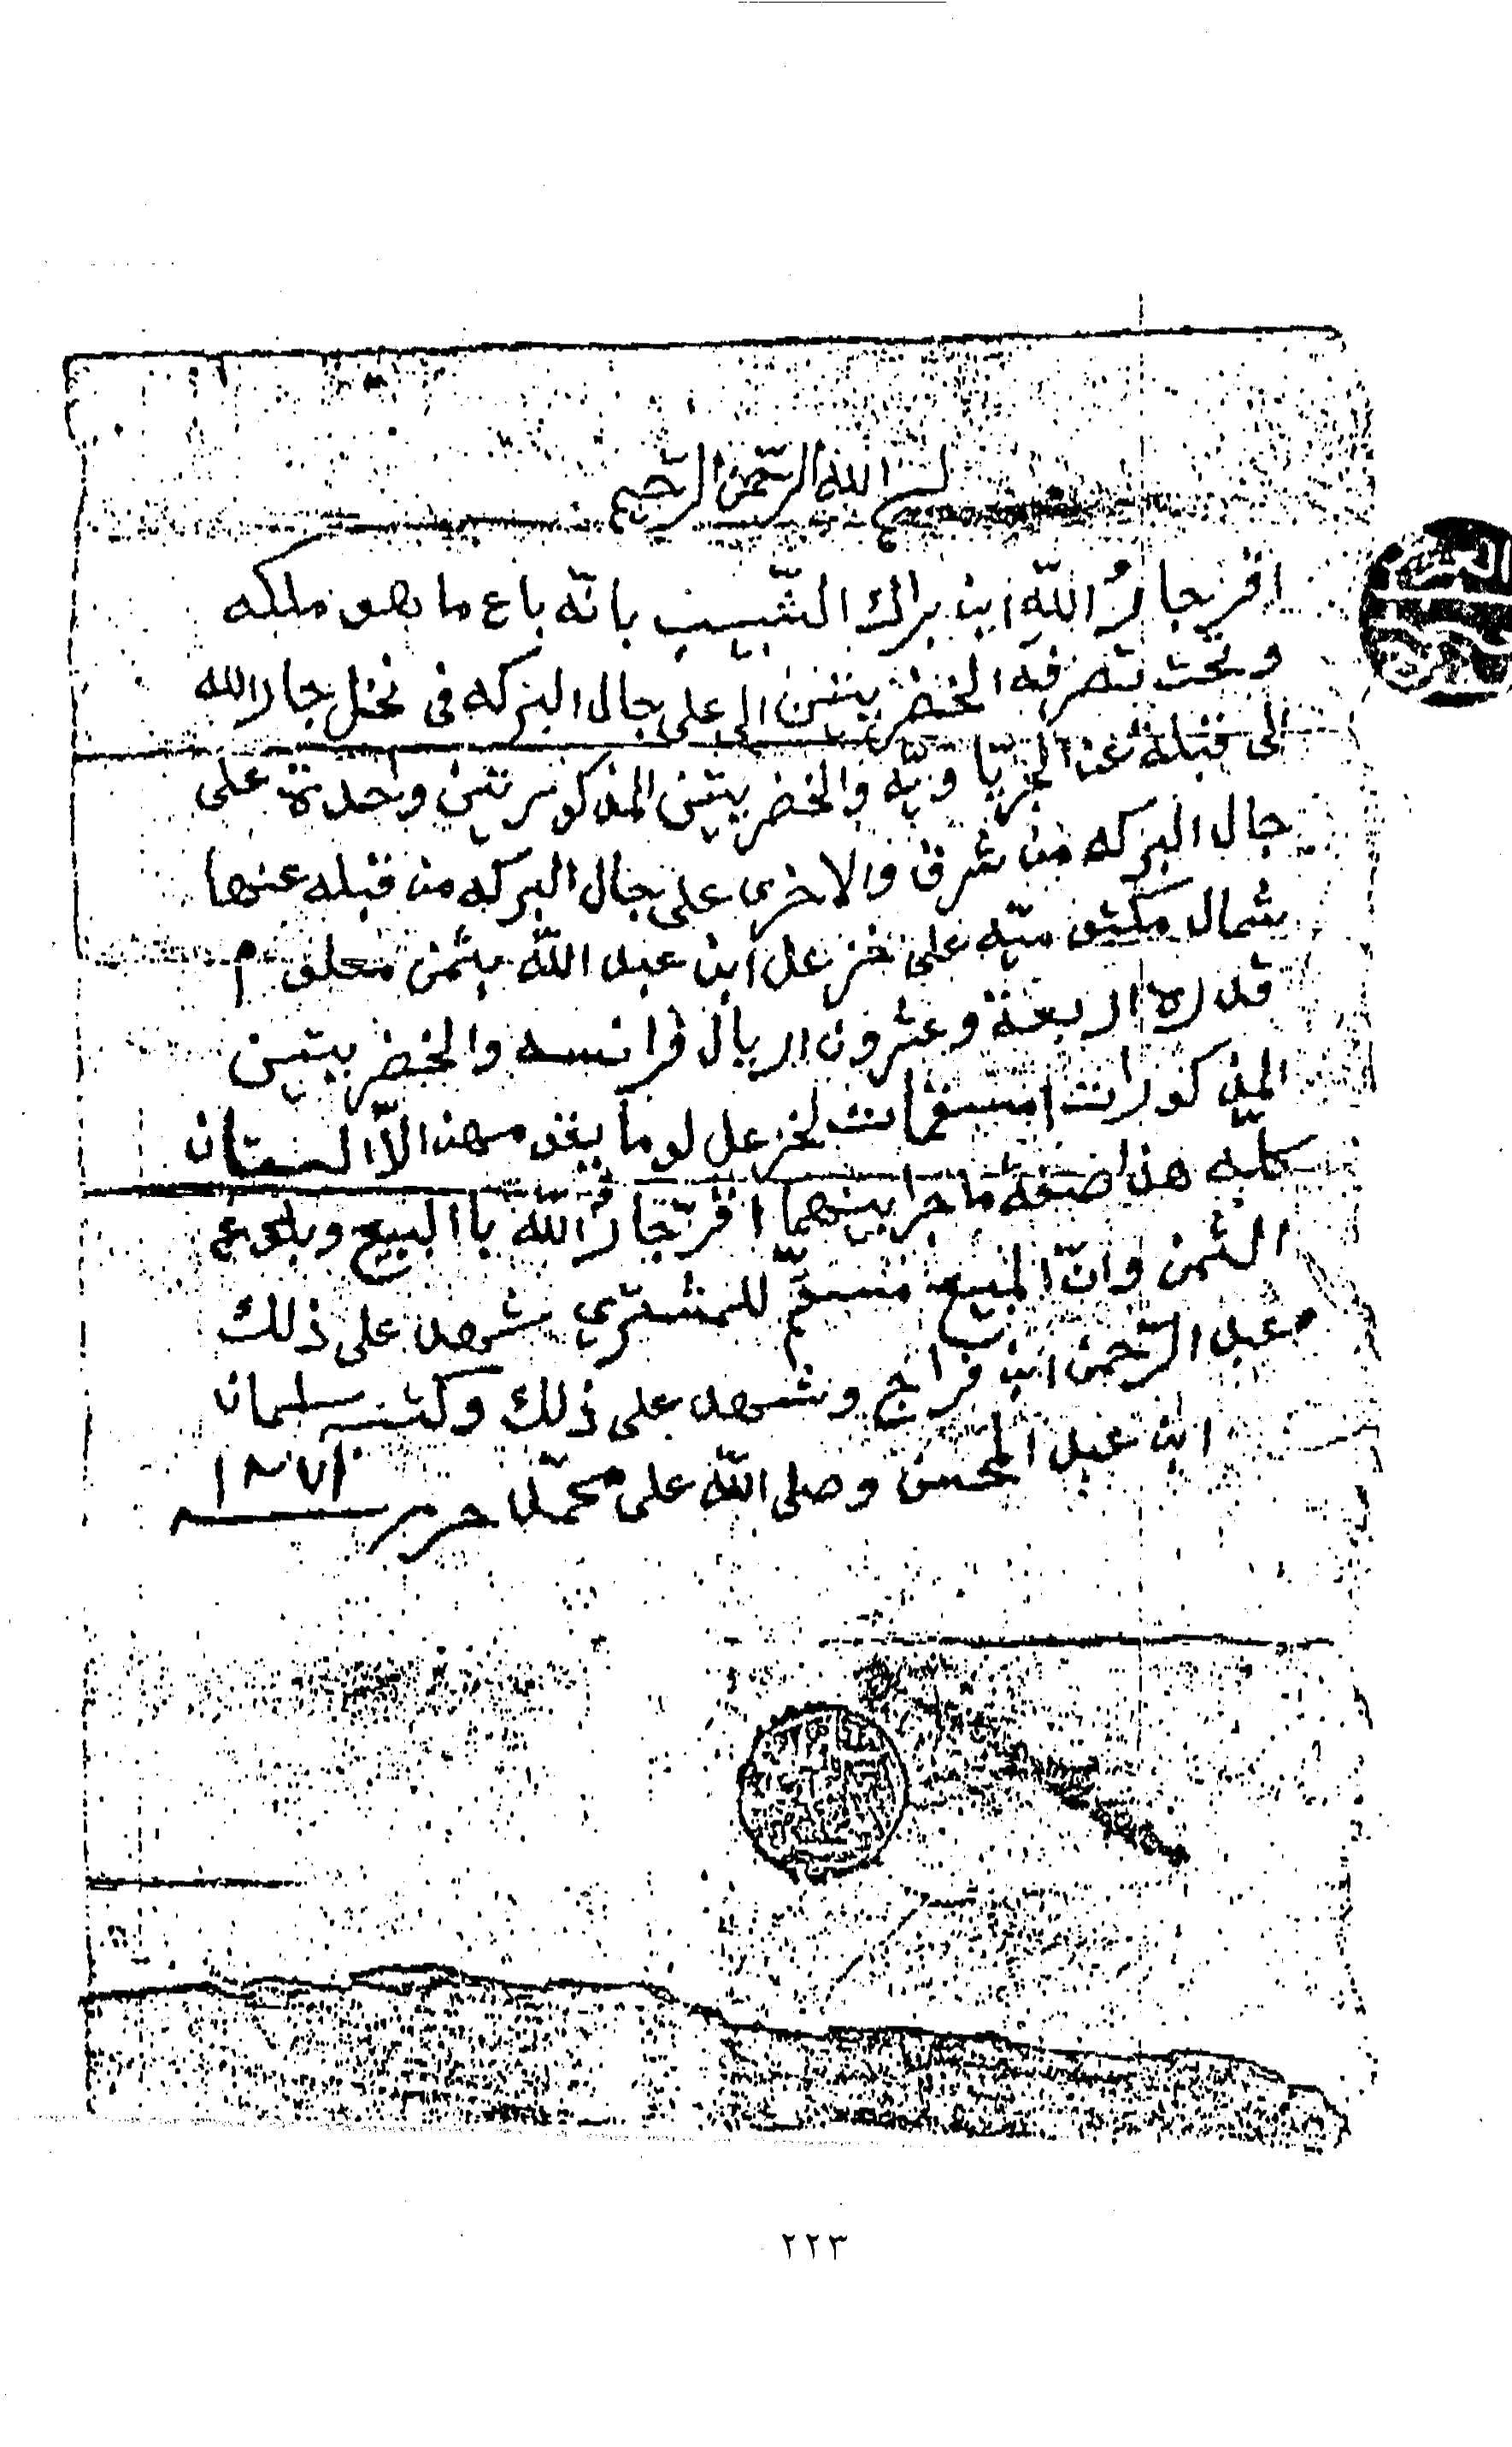 بسم الله الرحمن الرحيم
اقر جارُ اللّه ابن براك الشّبيب بانّه باع ما هو ملكه
وتحت تصرفه الخضريتين الى على جال البركه فى نخل جار الله
الى قبلة عن الجرياويّه والخضريتين المذكورتين وحدة على
جال البركه من شرق والاخرى على جال البركه من قبله عنها
شمال على خزعل ابن عبد اللّه بثمن معلوم
قدره اربعة وعشرون اريال فرانسه والخضريتين
المذكورات لخزعل لو ما الاّ البستان
كلّه هذا صفة ما جرا بينهما اقر جارُ اللّه باالبيع وبلوع
الثمن وانّ المبيع للمشتري شهد على ذلك
عبد الرّحمن ابن فراج وشهد على ذلك وكتبه سلمان
ابن عبد المحسن وصلى اللّه على محمّد حرر
٢٢٣